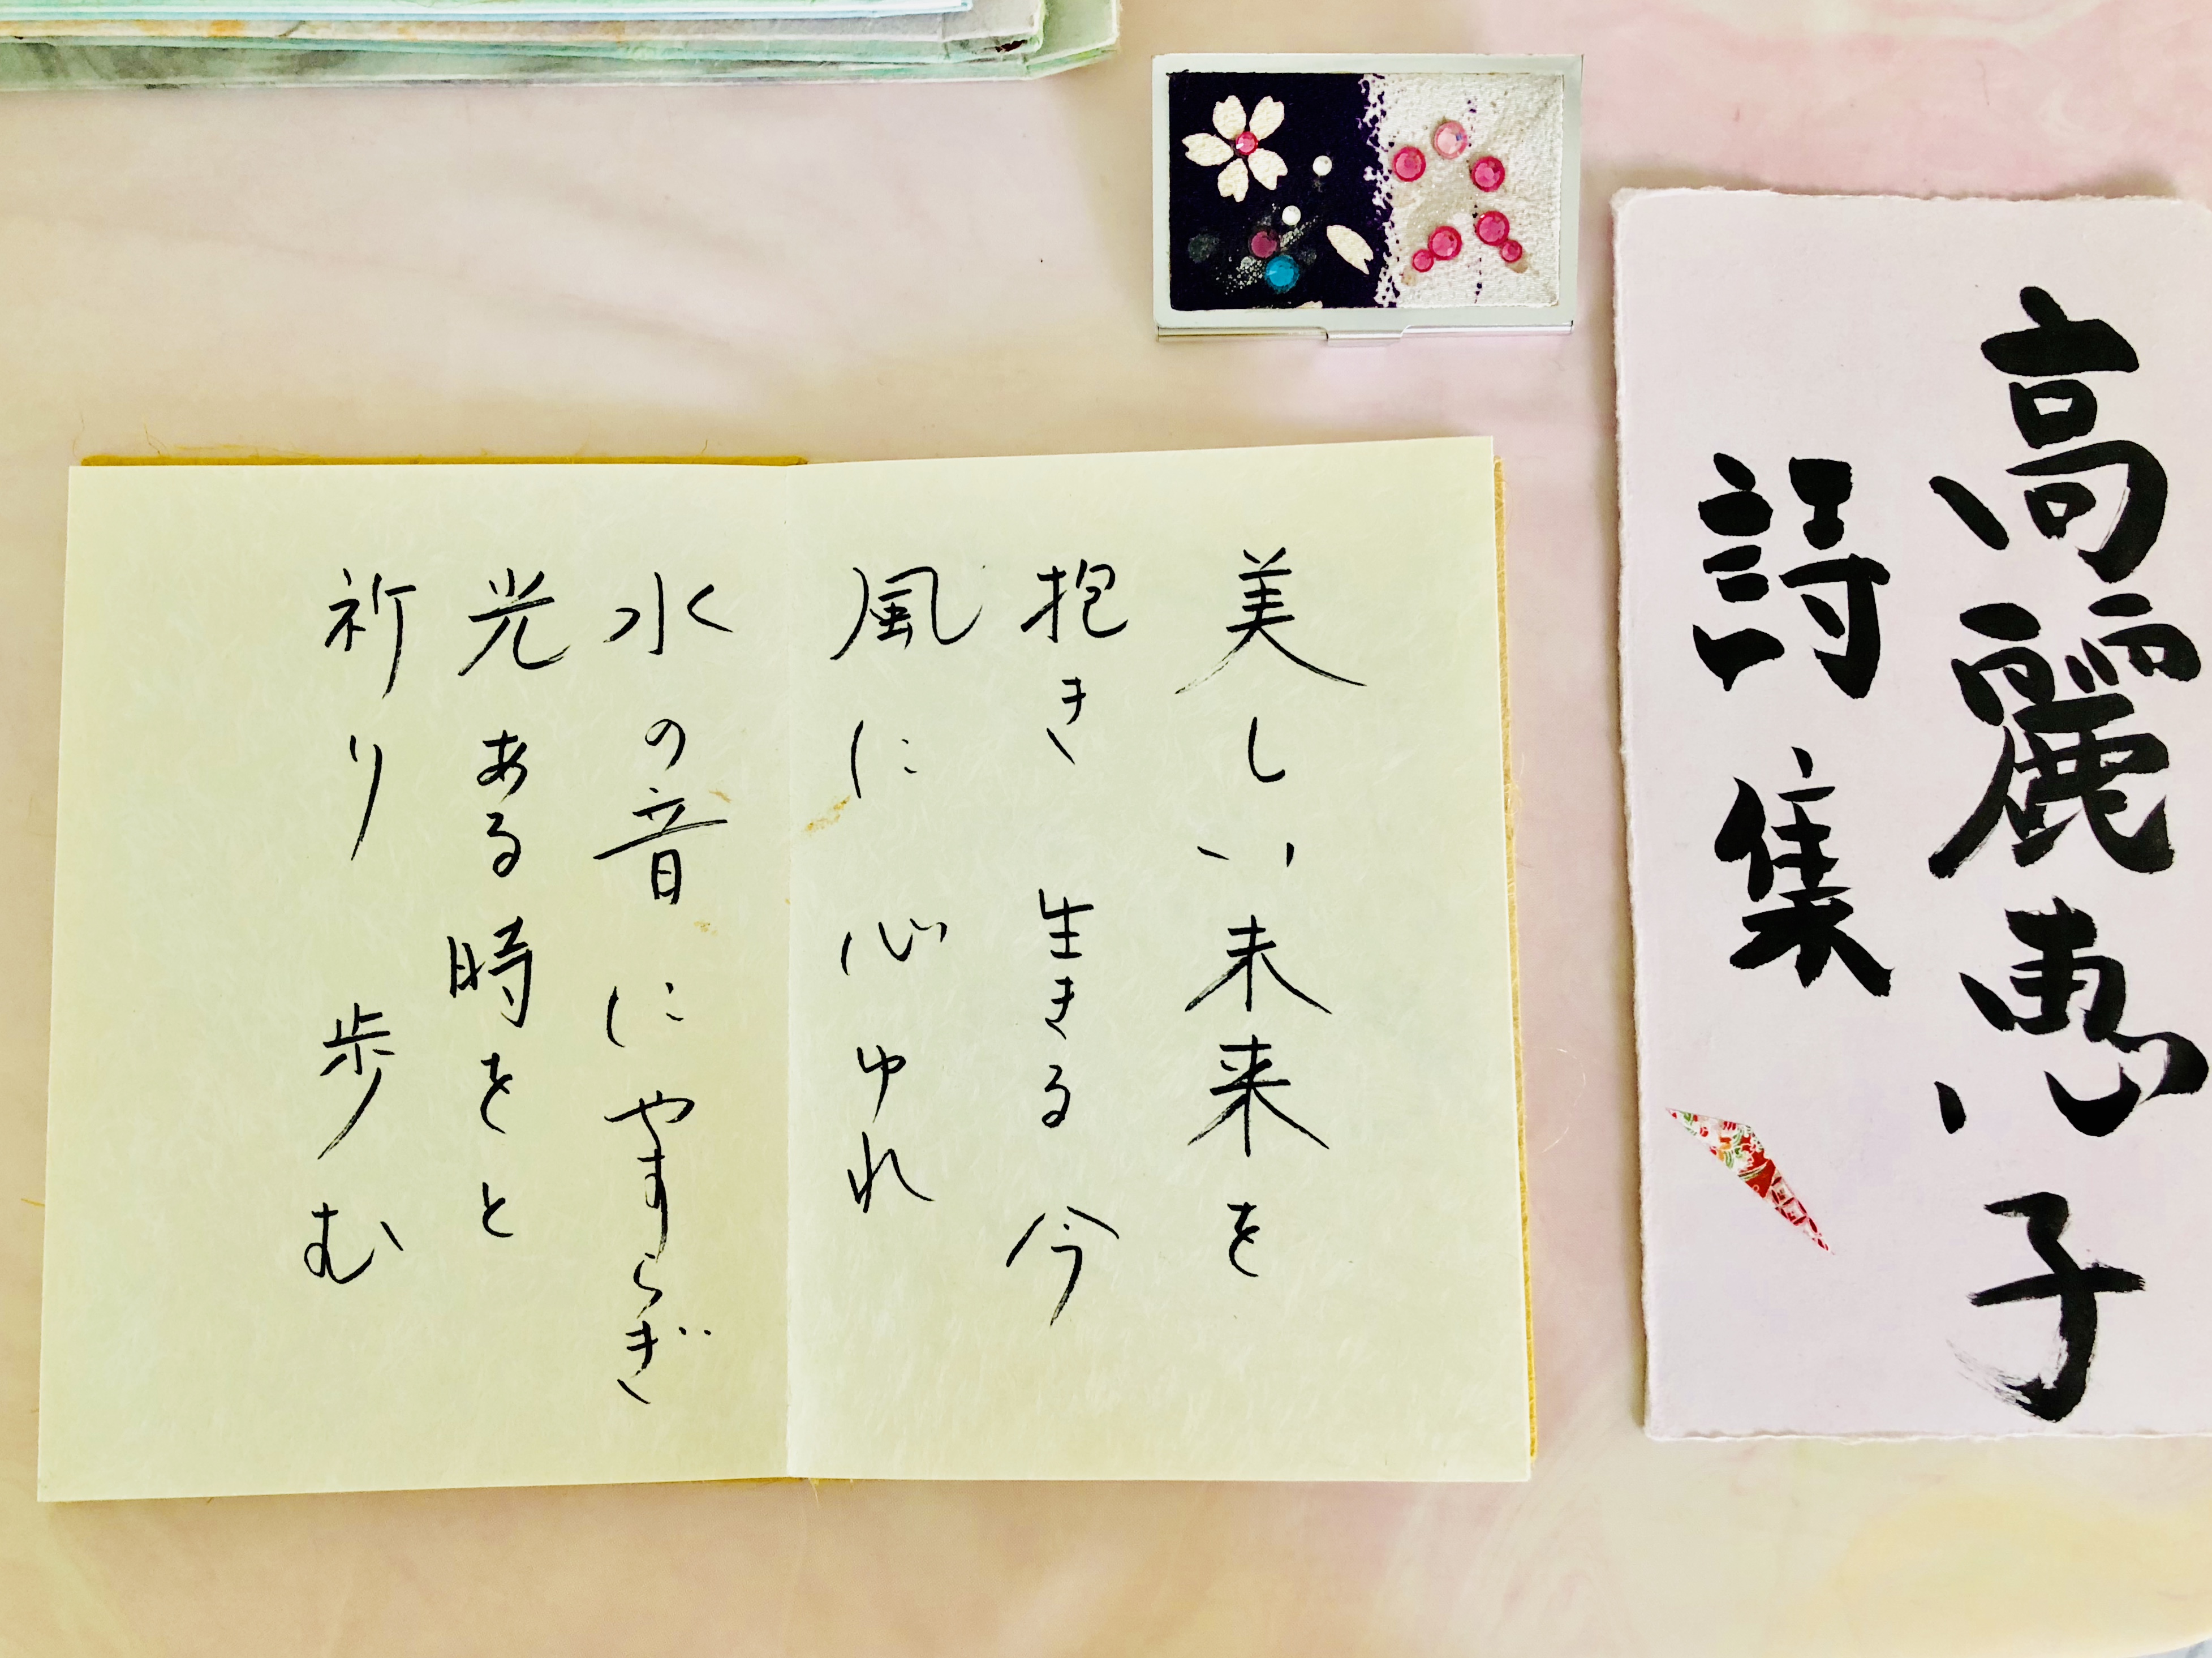 高麗恵子
詩集
美しい未来を
抱き 生きる 今
風に 心ゆれ
水の音に やすらぎ
光ある時をと
祈り 歩む